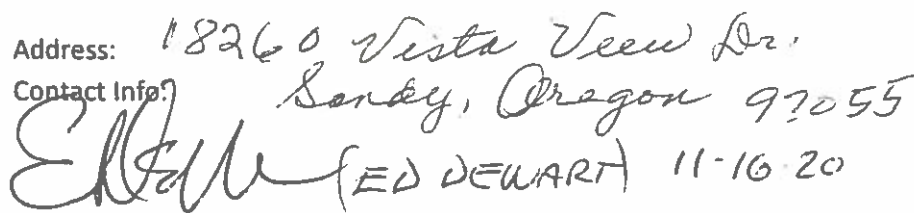 Address: 18260 Vista View Dr.
Contact Info: Sandy, Oregon 97055
(ED DEWART) 11-16-20